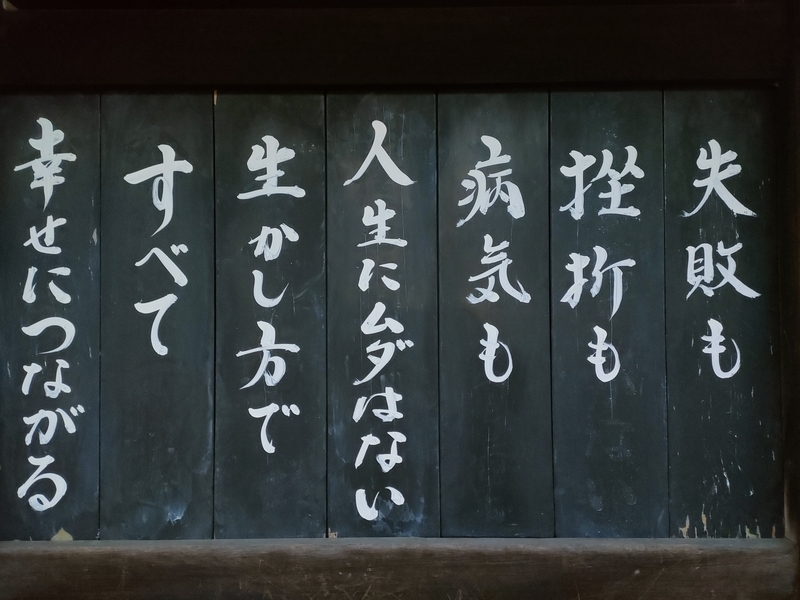 失敗も
挫折も
病気も
人生にムダはない
生かし方で
すべて
幸せにつながる